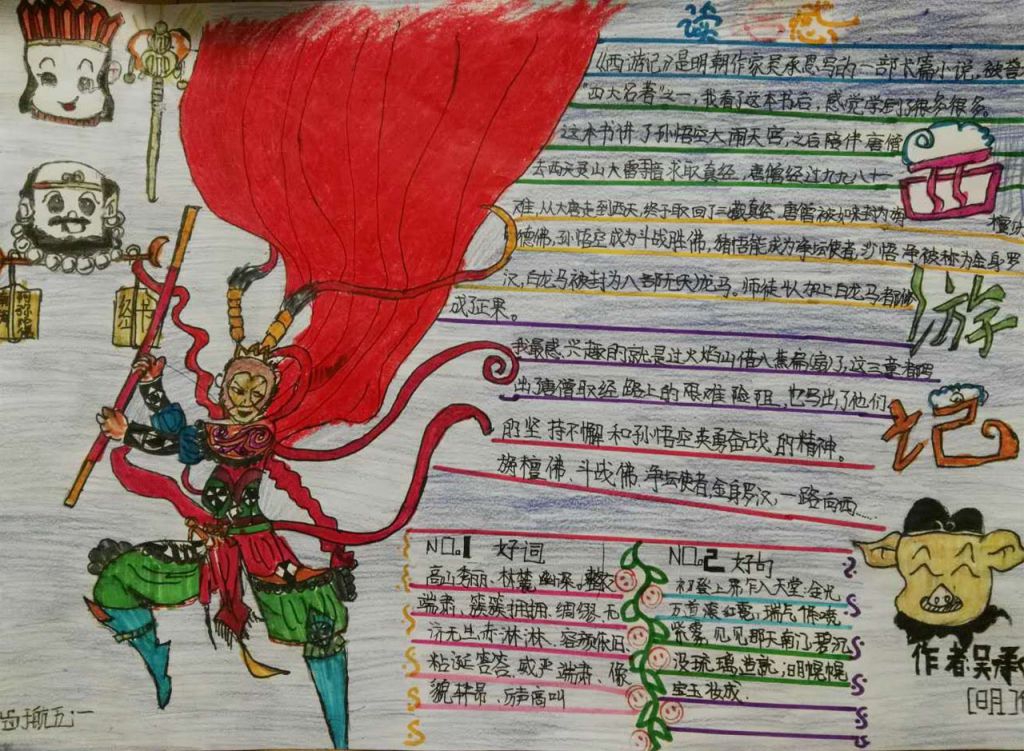 读 感
《西游记》是明朝作家吴承恩写的一部长篇小说，被誉
"四大名著"之一，我看了这本书后，感觉学到了很多很多。
这本书讲了孙悟空大闹天宫，之后陪伴唐僧
去西天灵山大雷寺求取真经，唐僧经过九九八十一
难，从大唐走到西天，终于取回了三藏真经，唐僧被如来封为旃檀
德佛，孙悟空成为斗战胜佛，猪悟能成为净坛使者，沙悟净被称为金身罗
汉，白龙马被封为八部天龙马。师徒四人加上白龙马都修
成了正果。
我最感兴趣的就是过火焰山借八蕉扇(扇)了，这三章都写
出了唐僧取经路上的艰难险阻，也写出了他们
的坚持不懈和孙悟空英勇奋战的精神。
旃檀佛、斗战佛、净坛使者、金身罗汉，一路向西……
西
游
记
NO.1 好词
高山秀丽、林麓幽深、
端肃、簇簇拥拥、绸缪、无
济无生、赤淋淋、容颜依旧、
粘涎、威严端肃、像
貌、厉声高叫
NO.2 好句
初登上界，乍入天堂：金光
万道滚红霓，瑞气千条喷
紫雾。只见那天南门，碧沉
沉，琉璃造就；明幌幌，
宝玉妆成。
作者吴承
[明]
五·一